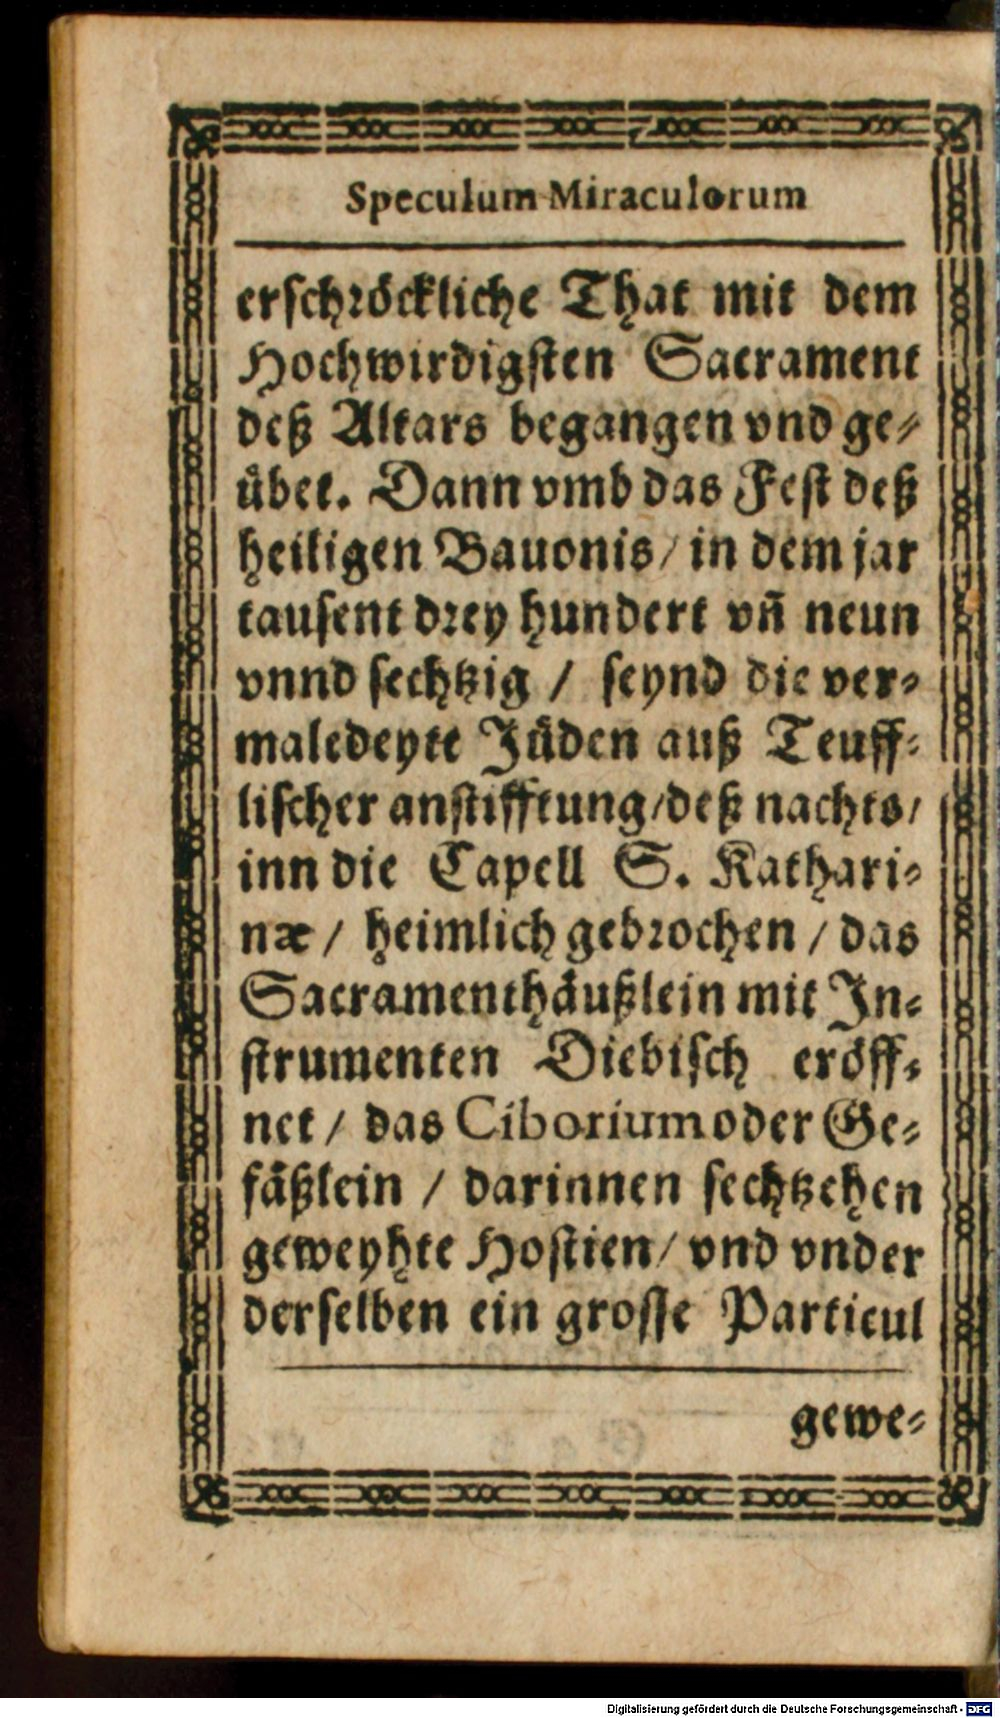 Speculum Miraculorum
erschröckliche That mit dem
Hochwirdigsten Sacrament
deß Altars begangen vnd ge-
übet. Dann vmb das Fest deß
heiligen Bauonis / in dem jar
tausent drey hundert vñ neun
vnnd sechtzig / seynd die ver-
maledeyte Jüden auß Teuff-
lischer anstifftung / deß nachts /
inn die Capell S. Kathari-
næ / heimlich gebrochen / das
Sacramenthäußlein mit In-
strumenten Diebisch eröff-
net / das Ciborium oder Ge-
fäßlein / darinnen sechtzehen
geweyhte Hostien / vnd vnder
derselben ein grosse Particul
gewe-
Digitalisierung gefördert durch die Deutsche Forschungsgemeinschaft - DFG